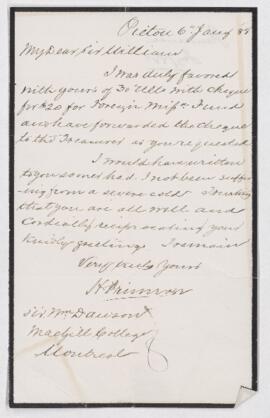 Pictou 6 Jany 88
My Dear Sir William
I was duly favored
with yours of 30 Ulto with cheque
for $20 for Foreign Missn Fund
and have forwarded the cheque
to the Treasurer as you requested
I would have written
to you sooner had I not been suffer
ing from a severe cold Trusting
that you are all well and
Cordially reciprocating your
kindly greeting I remain
Very truly Yours
H Primrose
Sir Wm Dawson
MacGill College
Montreal